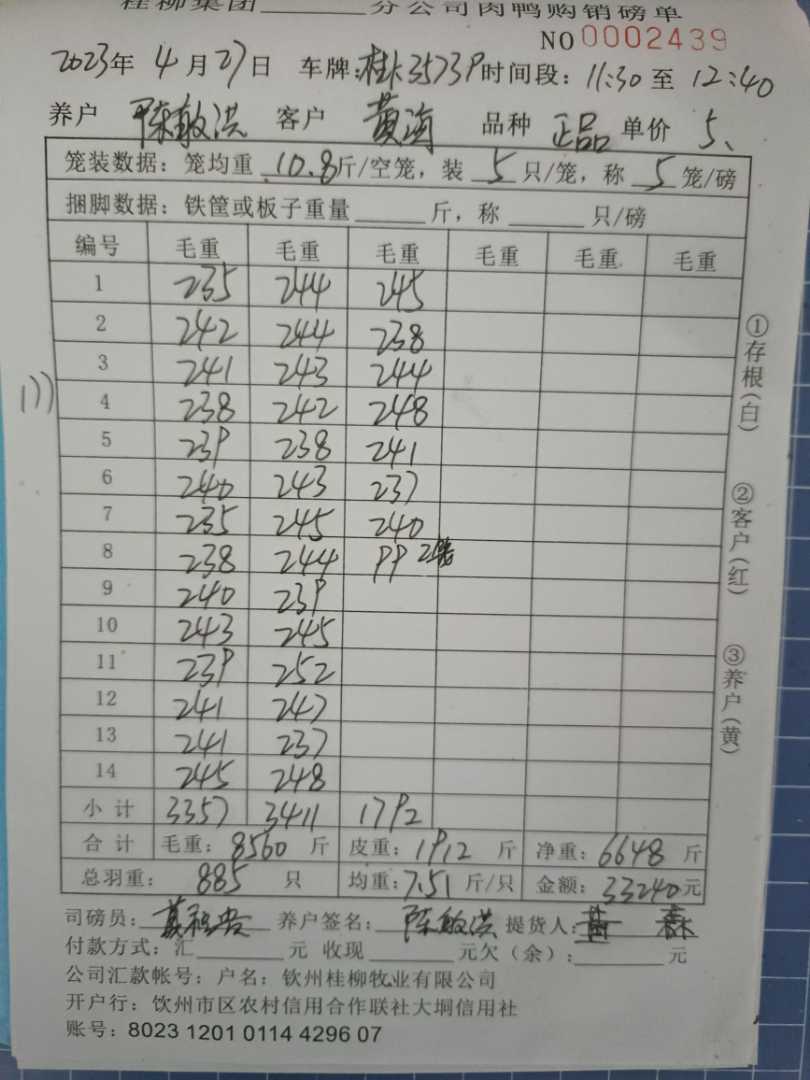 桂柳集团 分公司肉鸭购销磅单
NO 0002439
2023年 4月27日 车牌:桂K3573P时间段: 11:30 至 12:40
养户 陈敏洪 客户 黄海 品种 正品 单价 5、
笼装数据: 笼均重 10.8斤/空笼, 装 5 只/笼, 称 5 笼/磅
捆脚数据: 铁筐或板子重量 斤, 称 只/磅
编号 毛重 毛重 毛重 毛重 毛重 毛重
1 235 244 245
2 242 244 238
3 241 243 244
4 238 242 248
5 239 238 241
6 240 243 237
7 235 245 240
8 238 244 99
9 240 239
10 243 245
11 239 252
12 241 247
13 241 237
14 245 248
小计 3357 3411 1792
合计 毛重: 8560 斤 皮重: 1912 斤 净重: 6648 斤
总羽重: 885 只 均重: 7.51 斤/只 金额: 33240元
司磅员: 养户签名: 陈敏洪 提货人:
付款方式: 汇 元 收现 元欠(余): 元
公司汇款帐号: 户名: 钦州桂柳牧业有限公司
开户行: 钦州市区农村信用合作联社大垌信用社
账号: 8023 1201 0114 4296 07
①存根(白)
②客户(红)
③养户(黄)